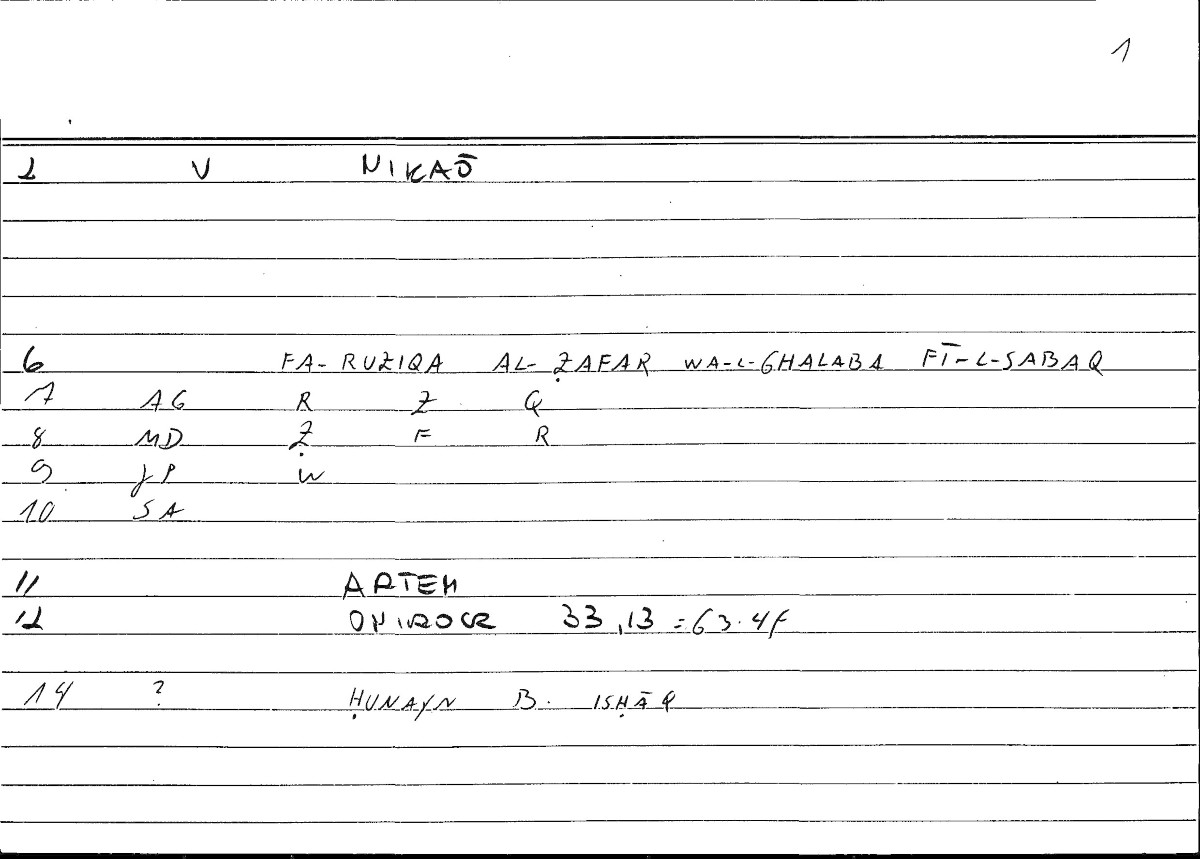 1
2 V NIKAŌ
6 FA- RUZIQA AL- ẒAFAR WA-L-GHALABA FĪ-L-SABAQ
7 AG R Z Q
8 MD Ẓ F R
9 JP W
10 SA
11 ARTEM
12 ONIROCR 33,13 = 63.4f
14 ? ḤUNAYN B. ISḤĀQ